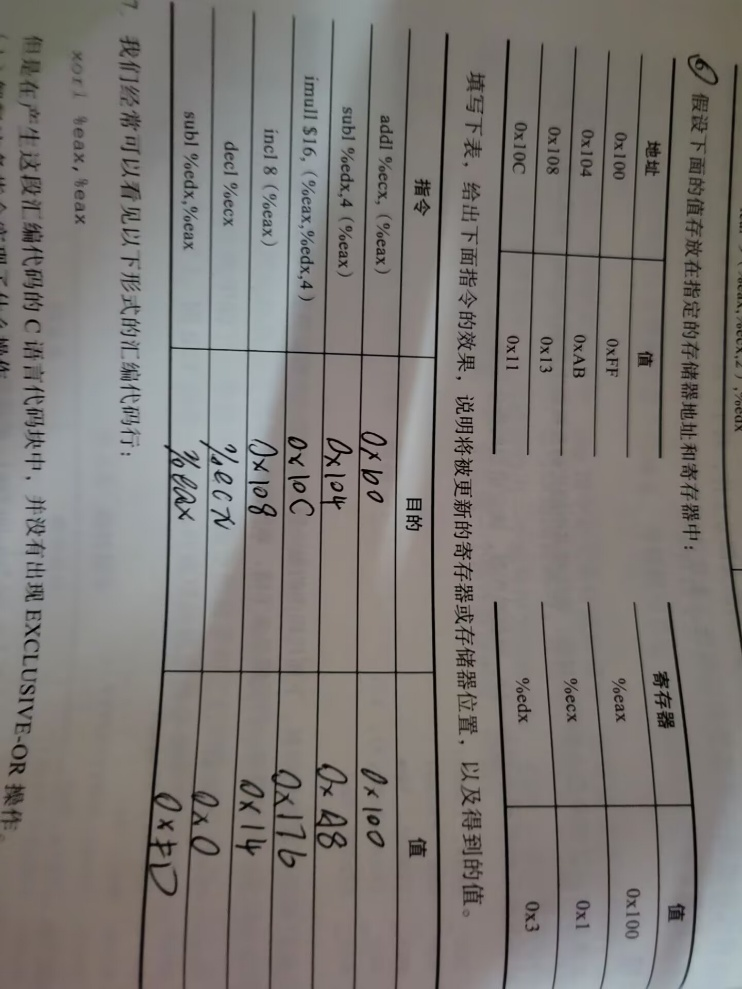 ⑥ 假设下面的值存放在指定的存储器地址和寄存器中：
地址 值 寄存器 值
0x100 0xFF %eax 0x100
0x104 0xAB %ecx 0x1
0x108 0x13 %edx 0x3
0x10C 0x11
填写下表，给出下面指令的效果，说明将被更新的寄存器或存储器位置，以及得到的值。
指令 目的 值
addl %ecx,（%eax） 0x100
subl %edx,4（%eax） 0x104 0xA8
imull $16,（%eax,%edx,4） 0x10C
incl 8（%eax） 0x108 0x14
decl %ecx 0x0
subl %edx,%eax %eax 0xFD
7. 我们经常可以看见以下形式的汇编代码行：
xorl %eax,%eax
但是在产生这段汇编代码的 C 语言代码块中，并没有出现 EXCLUSIVE-OR 操作。